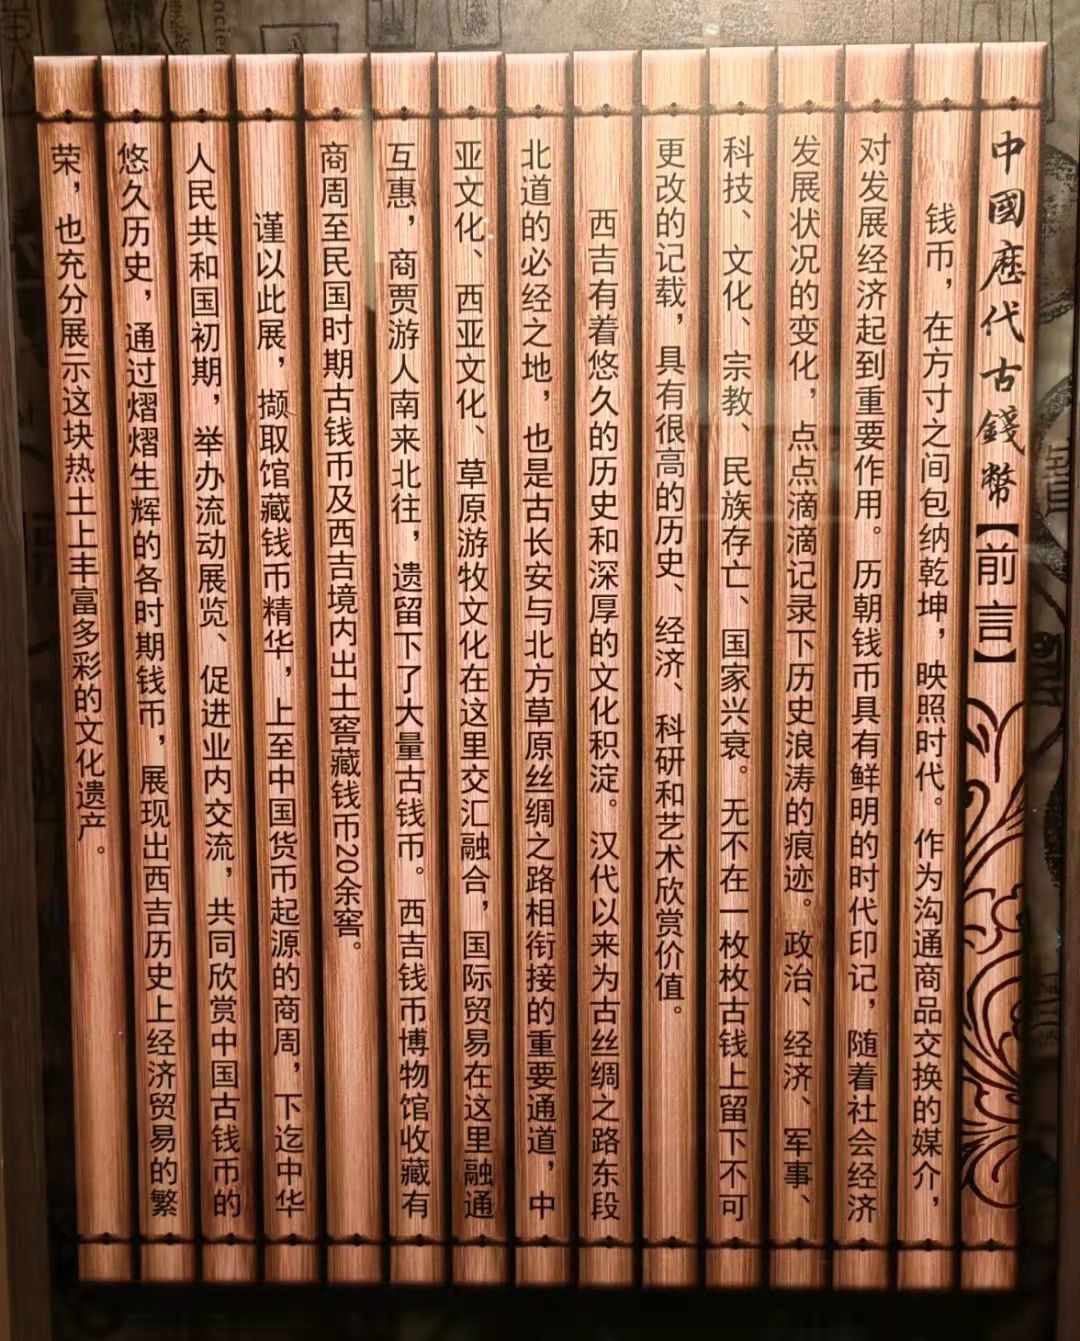 中國歷代古錢幣【前言】
钱币，在方寸之间包纳乾坤，映照时代。作为沟通商品交换的媒介，
对发展经济起到重要作用。历朝钱币具有鲜明的时代印记，随着社会经济
发展状况的变化，点点滴滴记录下历史浪涛的痕迹。政治、经济、军事、
科技、文化、宗教、民族存亡、国家兴衰。无不在一枚枚古钱上留下不可
更改的记载，具有很高的历史、经济、科研和艺术欣赏价值。
西吉有着悠久的历史和深厚的文化积淀。汉代以来为古丝绸之路东段
北道的必经之地，也是古长安与北方草原丝绸之路相衔接的重要通道，中
亚文化、西亚文化、草原游牧文化在这里交汇融合，国际贸易在这里融通
互惠，商贾游人南来北往，遗留下了大量古钱币。西吉钱币博物馆收藏有
商周至民国时期古钱币及西吉境内出土窖藏钱币20余窖。
谨以此展，撷取馆藏钱币精华，上至中国货币起源的商周，下迄中华
人民共和国初期，举办流动展览、促进业内交流，共同欣赏中国古钱币的
悠久历史，通过熠熠生辉的各时期钱币，展现出西吉历史上经济贸易的繁
荣，也充分展示这块热土上丰富多彩的文化遗产。